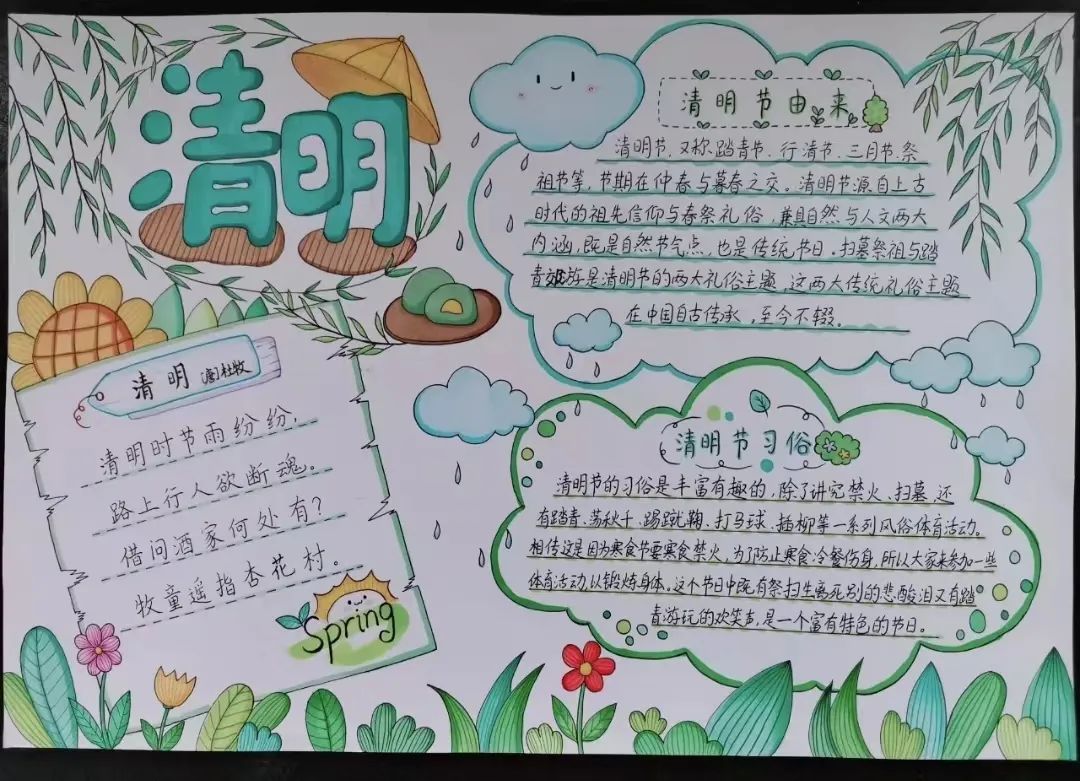 清明
清明 (唐)杜牧
清明时节雨纷纷,
路上行人欲断魂。
借问酒家何处有?
牧童遥指杏花村。
Spring
清明节由来
清明节,又称踏青节、行清节、三月节、祭
祖节等,节期在仲春与暮春之交。清明节源自上古
时代的祖先信仰与春祭礼俗,兼具自然与人文两大
内涵,既是自然节气点,也是传统节日。扫墓祭祖与踏
青郊游是清明节的两大礼俗主题,这两大传统礼俗主题
在中国自古传承,至今不辍。
清明节习俗
清明节的习俗是丰富有趣的,除了讲究禁火、扫墓,还
有踏青、荡秋千、踢蹴鞠、打马球、插柳等一系列风俗体育活动。
相传这是因为寒食节要寒食禁火,为了防止寒食冷餐伤身,所以大家来参加一些
体育活动,以锻炼身体。这个节日中既有祭扫生离死别的悲酸泪,又有踏
青游玩的欢笑声,是一个富有特色的节日。